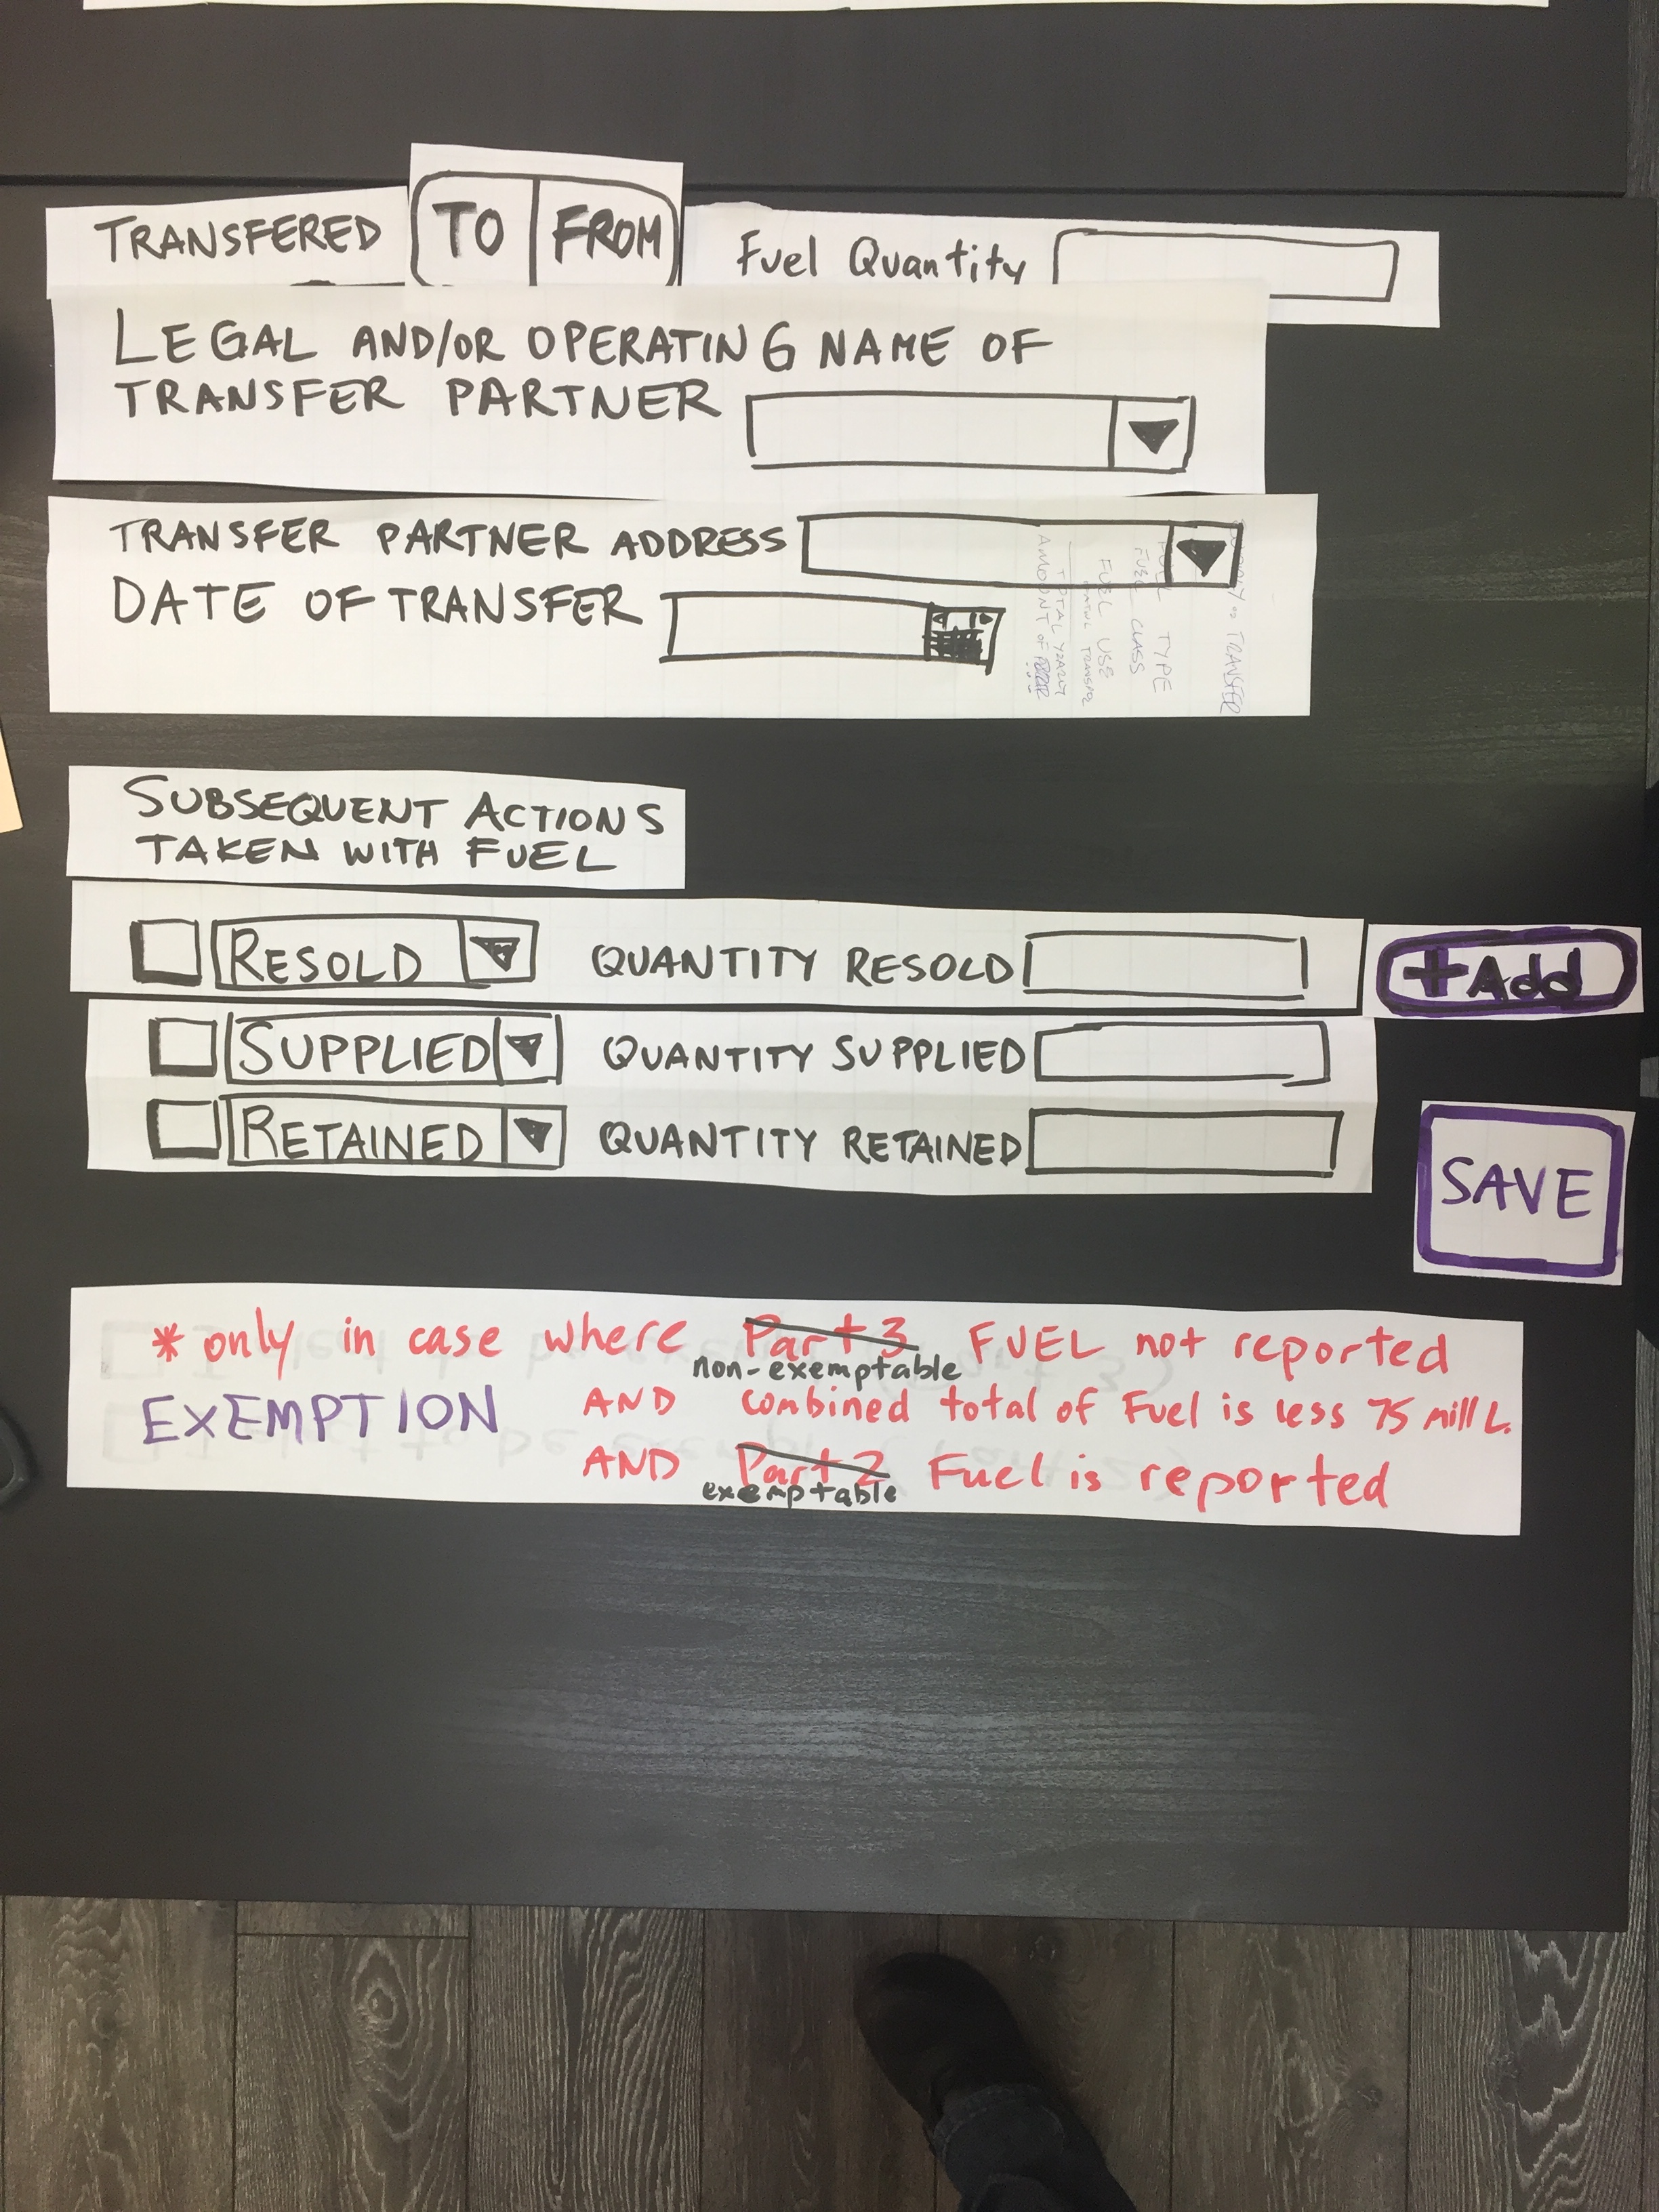 TRANSFERED TO FROM Fuel Quantity
LEGAL AND/OR OPERATING NAME OF
TRANSFER PARTNER
TRANSFER PARTNER ADDRESS
DATE OF TRANSFER
TRANSFER
FUEL TYPE
FUEL CLASS
FUEL USE
AMOUNT OF
SUBSEQUENT ACTIONS
TAKEN WITH FUEL
RESOLD QUANTITY RESOLD +Add
SUPPLIED QUANTITY SUPPLIED
RETAINED QUANTITY RETAINED
SAVE
* only in case where Part 3 FUEL not reported
non-exemptable
EXEMPTION AND combined total of Fuel is less 75 mill L.
AND Part 2 Fuel is reported
exemptable